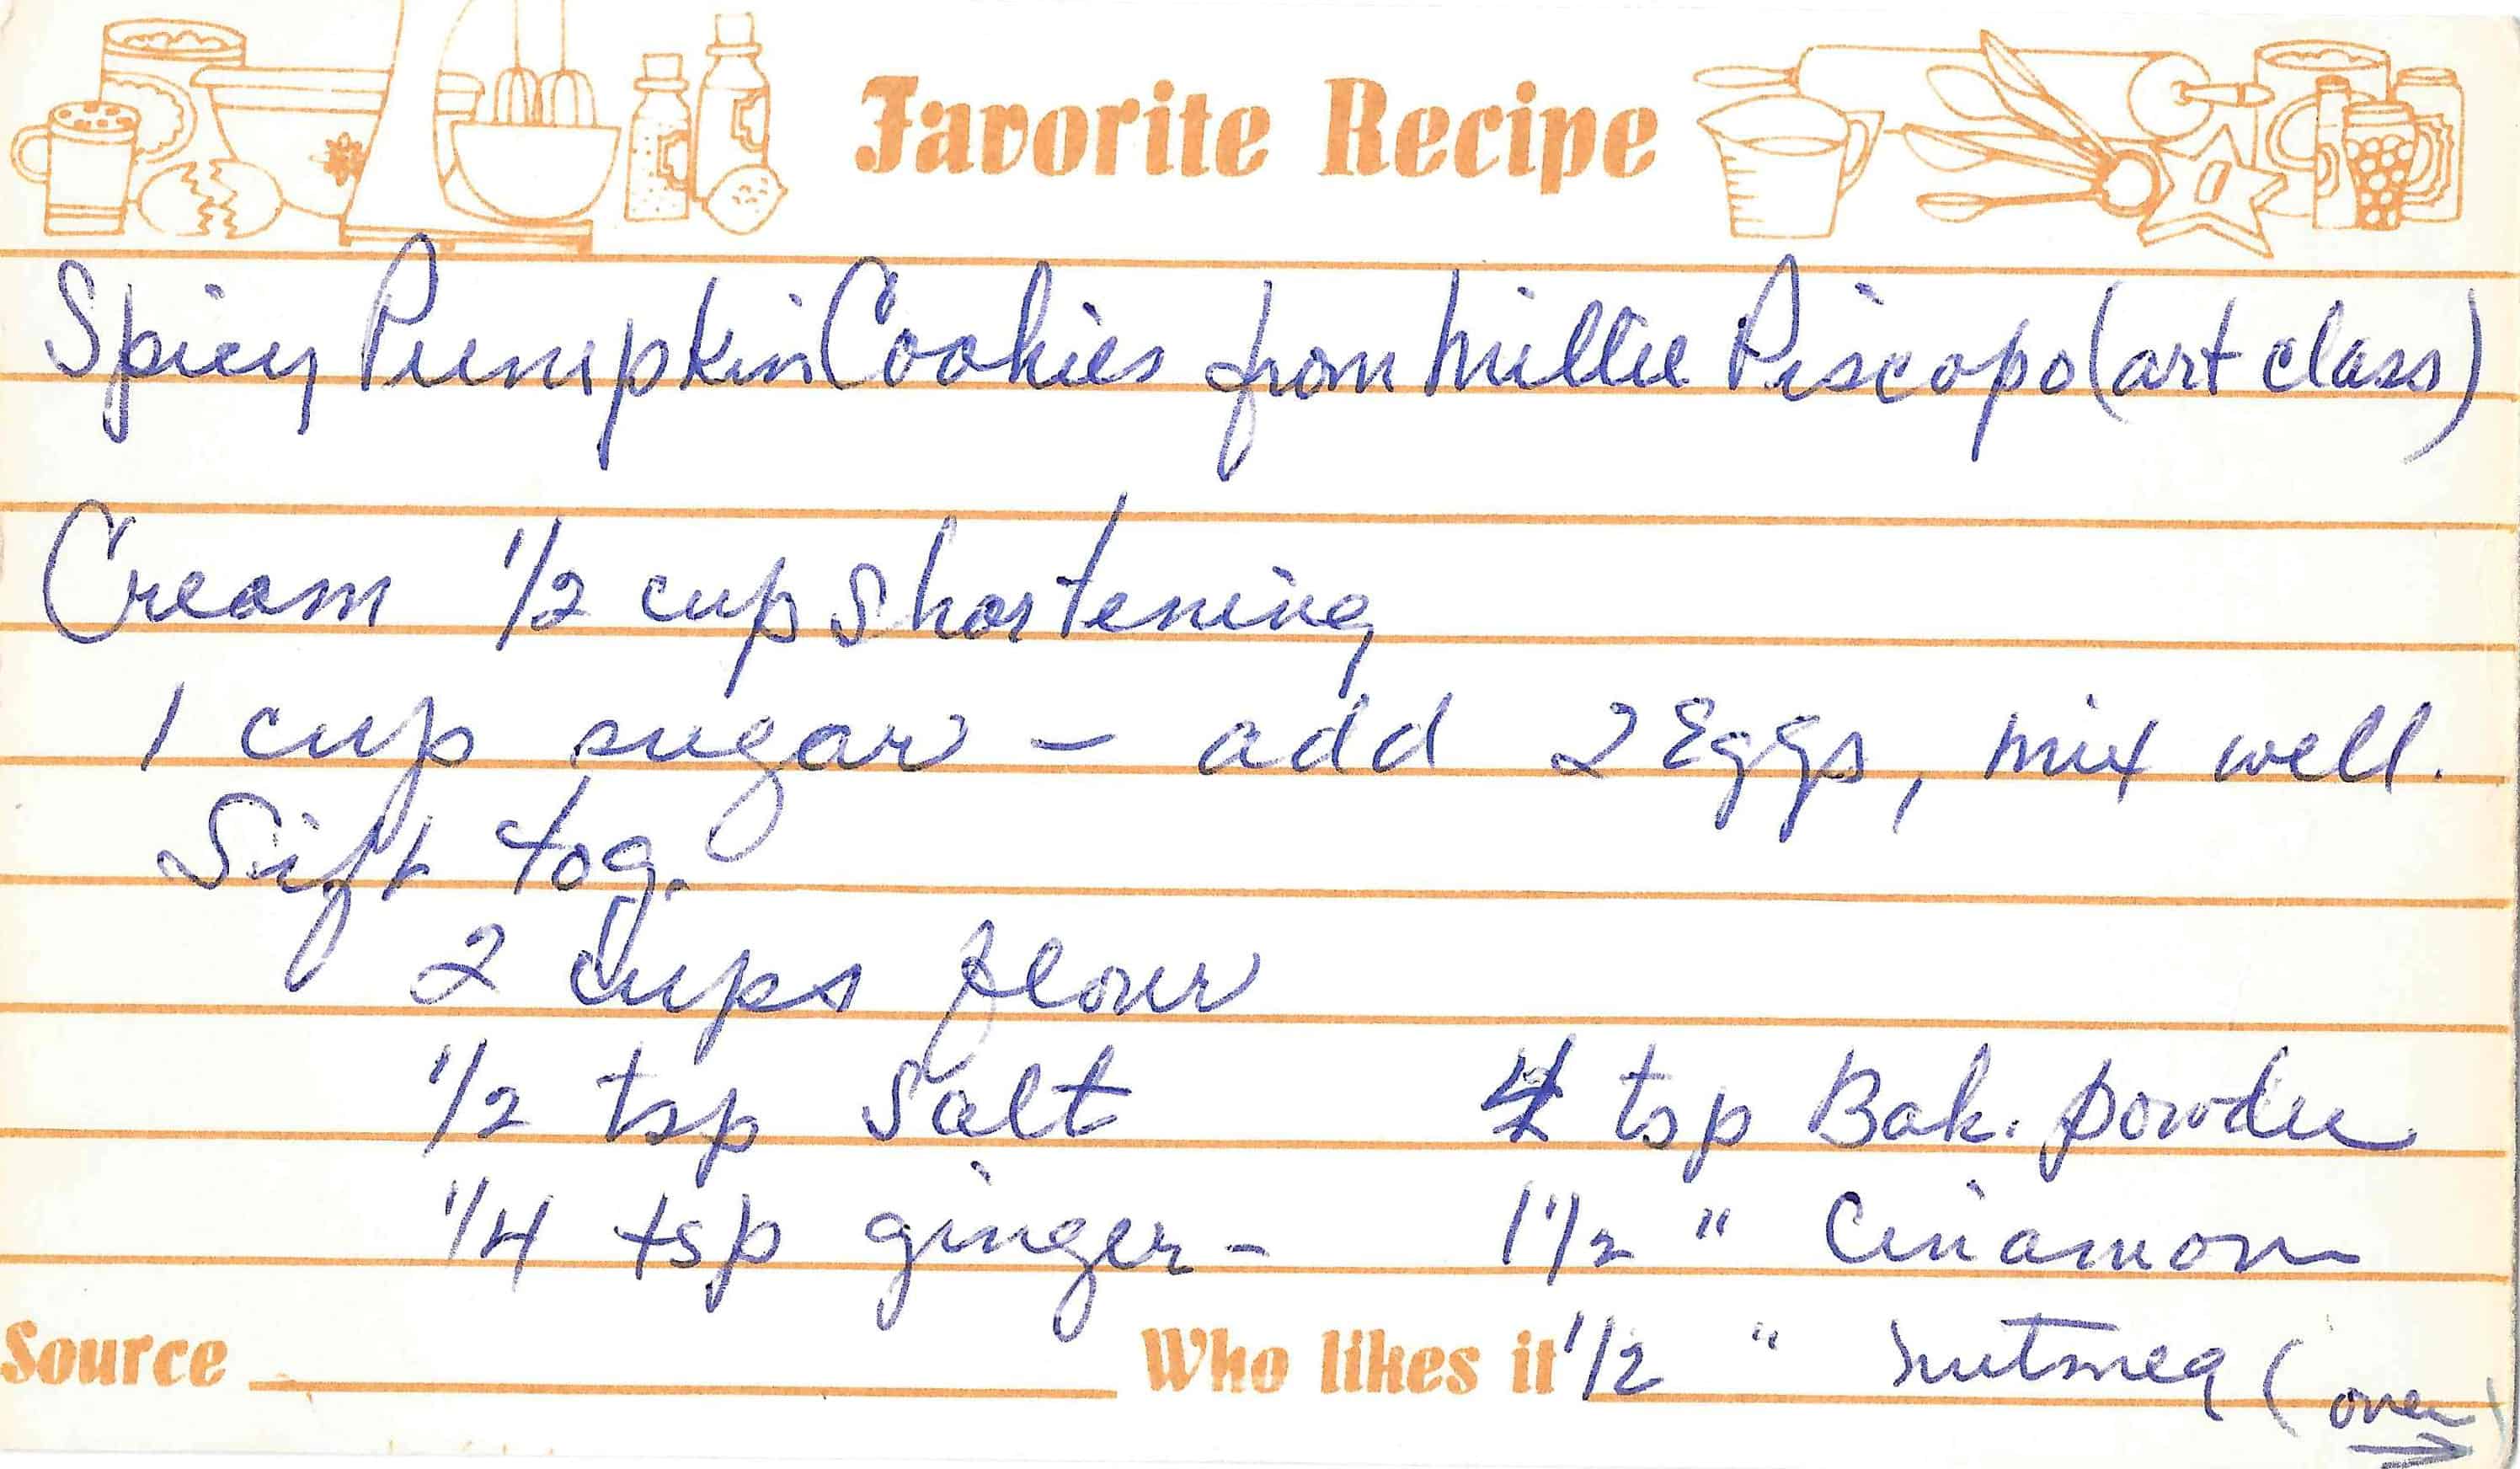 Favorite Recipe
Spicy Pumpkin Cookies from Millie Piscopo (art class)
Cream 1/2 cup shortening
1 cup sugar – add 2 Eggs, mix well.
Sift tog.
2 cups flour
1/2 tsp Salt 4 tsp Bak. powder
1/4 tsp ginger – 1 1/2 " Cinamon
Source Who likes it 1/2 " nutmeg (over)